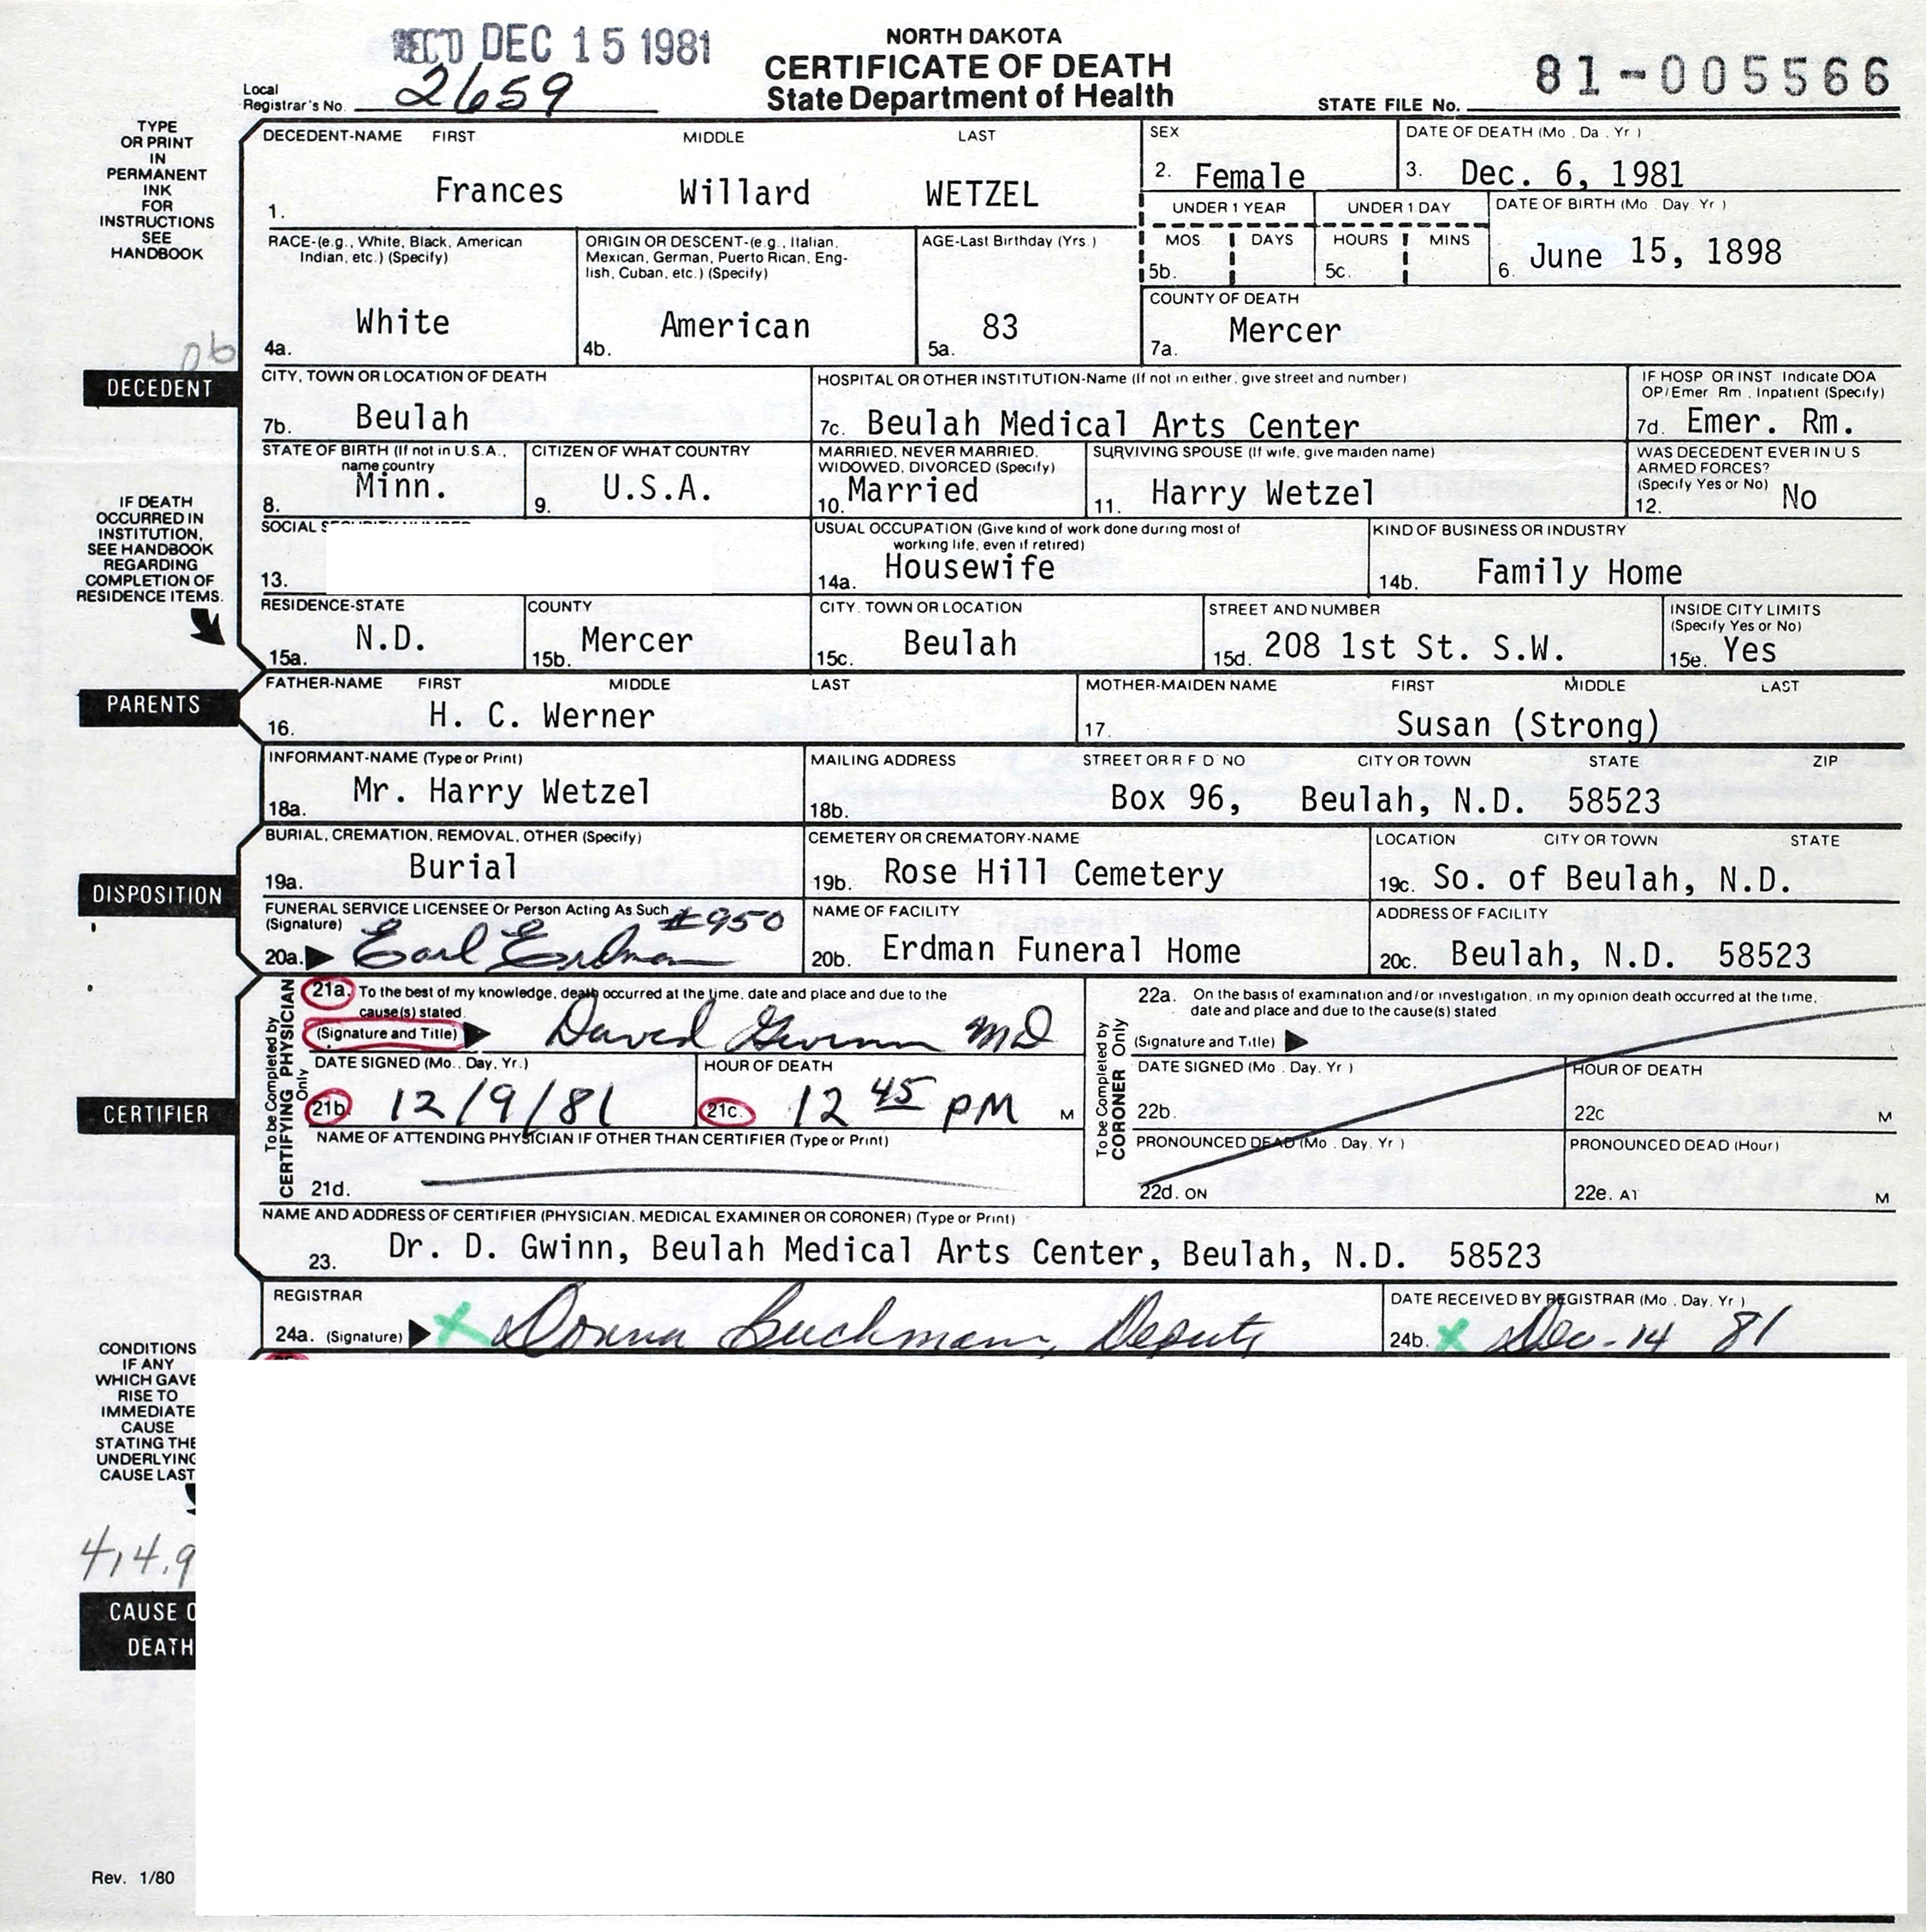 REC'D DEC 15 1981
NORTH DAKOTA
CERTIFICATE OF DEATH
State Department of Health
Local
Registrar's No. 2659
STATE FILE No. 81-005566
TYPE
OR PRINT
IN
PERMANENT
INK
FOR
INSTRUCTIONS
SEE
HANDBOOK
DECEDENT-NAME FIRST MIDDLE LAST
1. Frances Willard WETZEL
SEX
2. Female
DATE OF DEATH (Mo. Da. Yr.)
3. Dec. 6, 1981
RACE-(e.g., White, Black, American
Indian, etc.) (Specify)
4a. White
ORIGIN OR DESCENT-(e.g., Italian,
Mexican, German, Puerto Rican, Eng-
lish, Cuban, etc.) (Specify)
4b. American
AGE-Last Birthday (Yrs.)
5a. 83
UNDER 1 YEAR
MOS DAYS
5b.
UNDER 1 DAY
HOURS MINS
5c.
DATE OF BIRTH (Mo. Day. Yr.)
6. June 15, 1898
COUNTY OF DEATH
7a. Mercer
06
DECEDENT
CITY, TOWN OR LOCATION OF DEATH
7b. Beulah
HOSPITAL OR OTHER INSTITUTION-Name (If not in either, give street and number)
7c. Beulah Medical Arts Center
IF HOSP OR INST Indicate DOA
OP/Emer Rm. Inpatient (Specify)
7d. Emer. Rm.
STATE OF BIRTH (If not in U.S.A.,
name country
8. Minn.
CITIZEN OF WHAT COUNTRY
9. U.S.A.
MARRIED, NEVER MARRIED,
WIDOWED, DIVORCED (Specify)
10. Married
SURVIVING SPOUSE (If wife, give maiden name)
11. Harry Wetzel
WAS DECEDENT EVER IN U S
ARMED FORCES?
(Specify Yes or No)
12. No
IF DEATH
OCCURRED IN
INSTITUTION,
SEE HANDBOOK
REGARDING
COMPLETION OF
RESIDENCE ITEMS.
SOCIAL SECURITY NUMBER
13.
USUAL OCCUPATION (Give kind of work done during most of
working life, even if retired)
14a. Housewife
KIND OF BUSINESS OR INDUSTRY
14b. Family Home
RESIDENCE-STATE
15a. N.D.
COUNTY
15b. Mercer
CITY, TOWN OR LOCATION
15c. Beulah
STREET AND NUMBER
15d. 208 1st St. S.W.
INSIDE CITY LIMITS
(Specify Yes or No)
15e. Yes
PARENTS
FATHER-NAME FIRST MIDDLE LAST
16. H. C. Werner
MOTHER-MAIDEN NAME FIRST MIDDLE LAST
17. Susan (Strong)
INFORMANT-NAME (Type or Print)
18a. Mr. Harry Wetzel
MAILING ADDRESS STREET OR R F D NO CITY OR TOWN STATE ZIP
18b. Box 96, Beulah, N.D. 58523
DISPOSITION
BURIAL, CREMATION, REMOVAL, OTHER (Specify)
19a. Burial
CEMETERY OR CREMATORY-NAME
19b. Rose Hill Cemetery
LOCATION CITY OR TOWN STATE
19c. So. of Beulah, N.D.
FUNERAL SERVICE LICENSEE Or Person Acting As Such
(Signature) #950
20a. Earl Erdman
NAME OF FACILITY
20b. Erdman Funeral Home
ADDRESS OF FACILITY
20c. Beulah, N.D. 58523
CERTIFIER
To be Completed by
CERTIFYING PHYSICIAN
Only
21a. To the best of my knowledge, death occurred at the time, date and place and due to the
cause(s) stated.
(Signature and Title) David Gwinn MD
DATE SIGNED (Mo. Day, Yr.)
21b. 12/9/81
HOUR OF DEATH
21c. 12 45 PM M
NAME OF ATTENDING PHYSICIAN IF OTHER THAN CERTIFIER (Type or Print)
21d.
To be Completed by
CORONER Only
22a. On the basis of examination and/or investigation, in my opinion death occurred at the time,
date and place and due to the cause(s) stated
(Signature and Title)
DATE SIGNED (Mo. Day. Yr.)
22b.
HOUR OF DEATH
22c M
PRONOUNCED DEAD (Mo. Day, Yr.)
22d. ON
PRONOUNCED DEAD (Hour)
22e. AT M
NAME AND ADDRESS OF CERTIFIER (PHYSICIAN, MEDICAL EXAMINER OR CORONER) (Type or Print)
23. Dr. D. Gwinn, Beulah Medical Arts Center, Beulah, N.D. 58523
REGISTRAR
24a. (Signature) X Donna Buchmann, Deputy
DATE RECEIVED BY REGISTRAR (Mo. Day. Yr.)
24b. X Dec-14 81
CONDITIONS
IF ANY
WHICH GAVE
RISE TO
IMMEDIATE
CAUSE
STATING THE
UNDERLYING
CAUSE LAST
414.9
CAUSE O
DEATH
Rev. 1/80